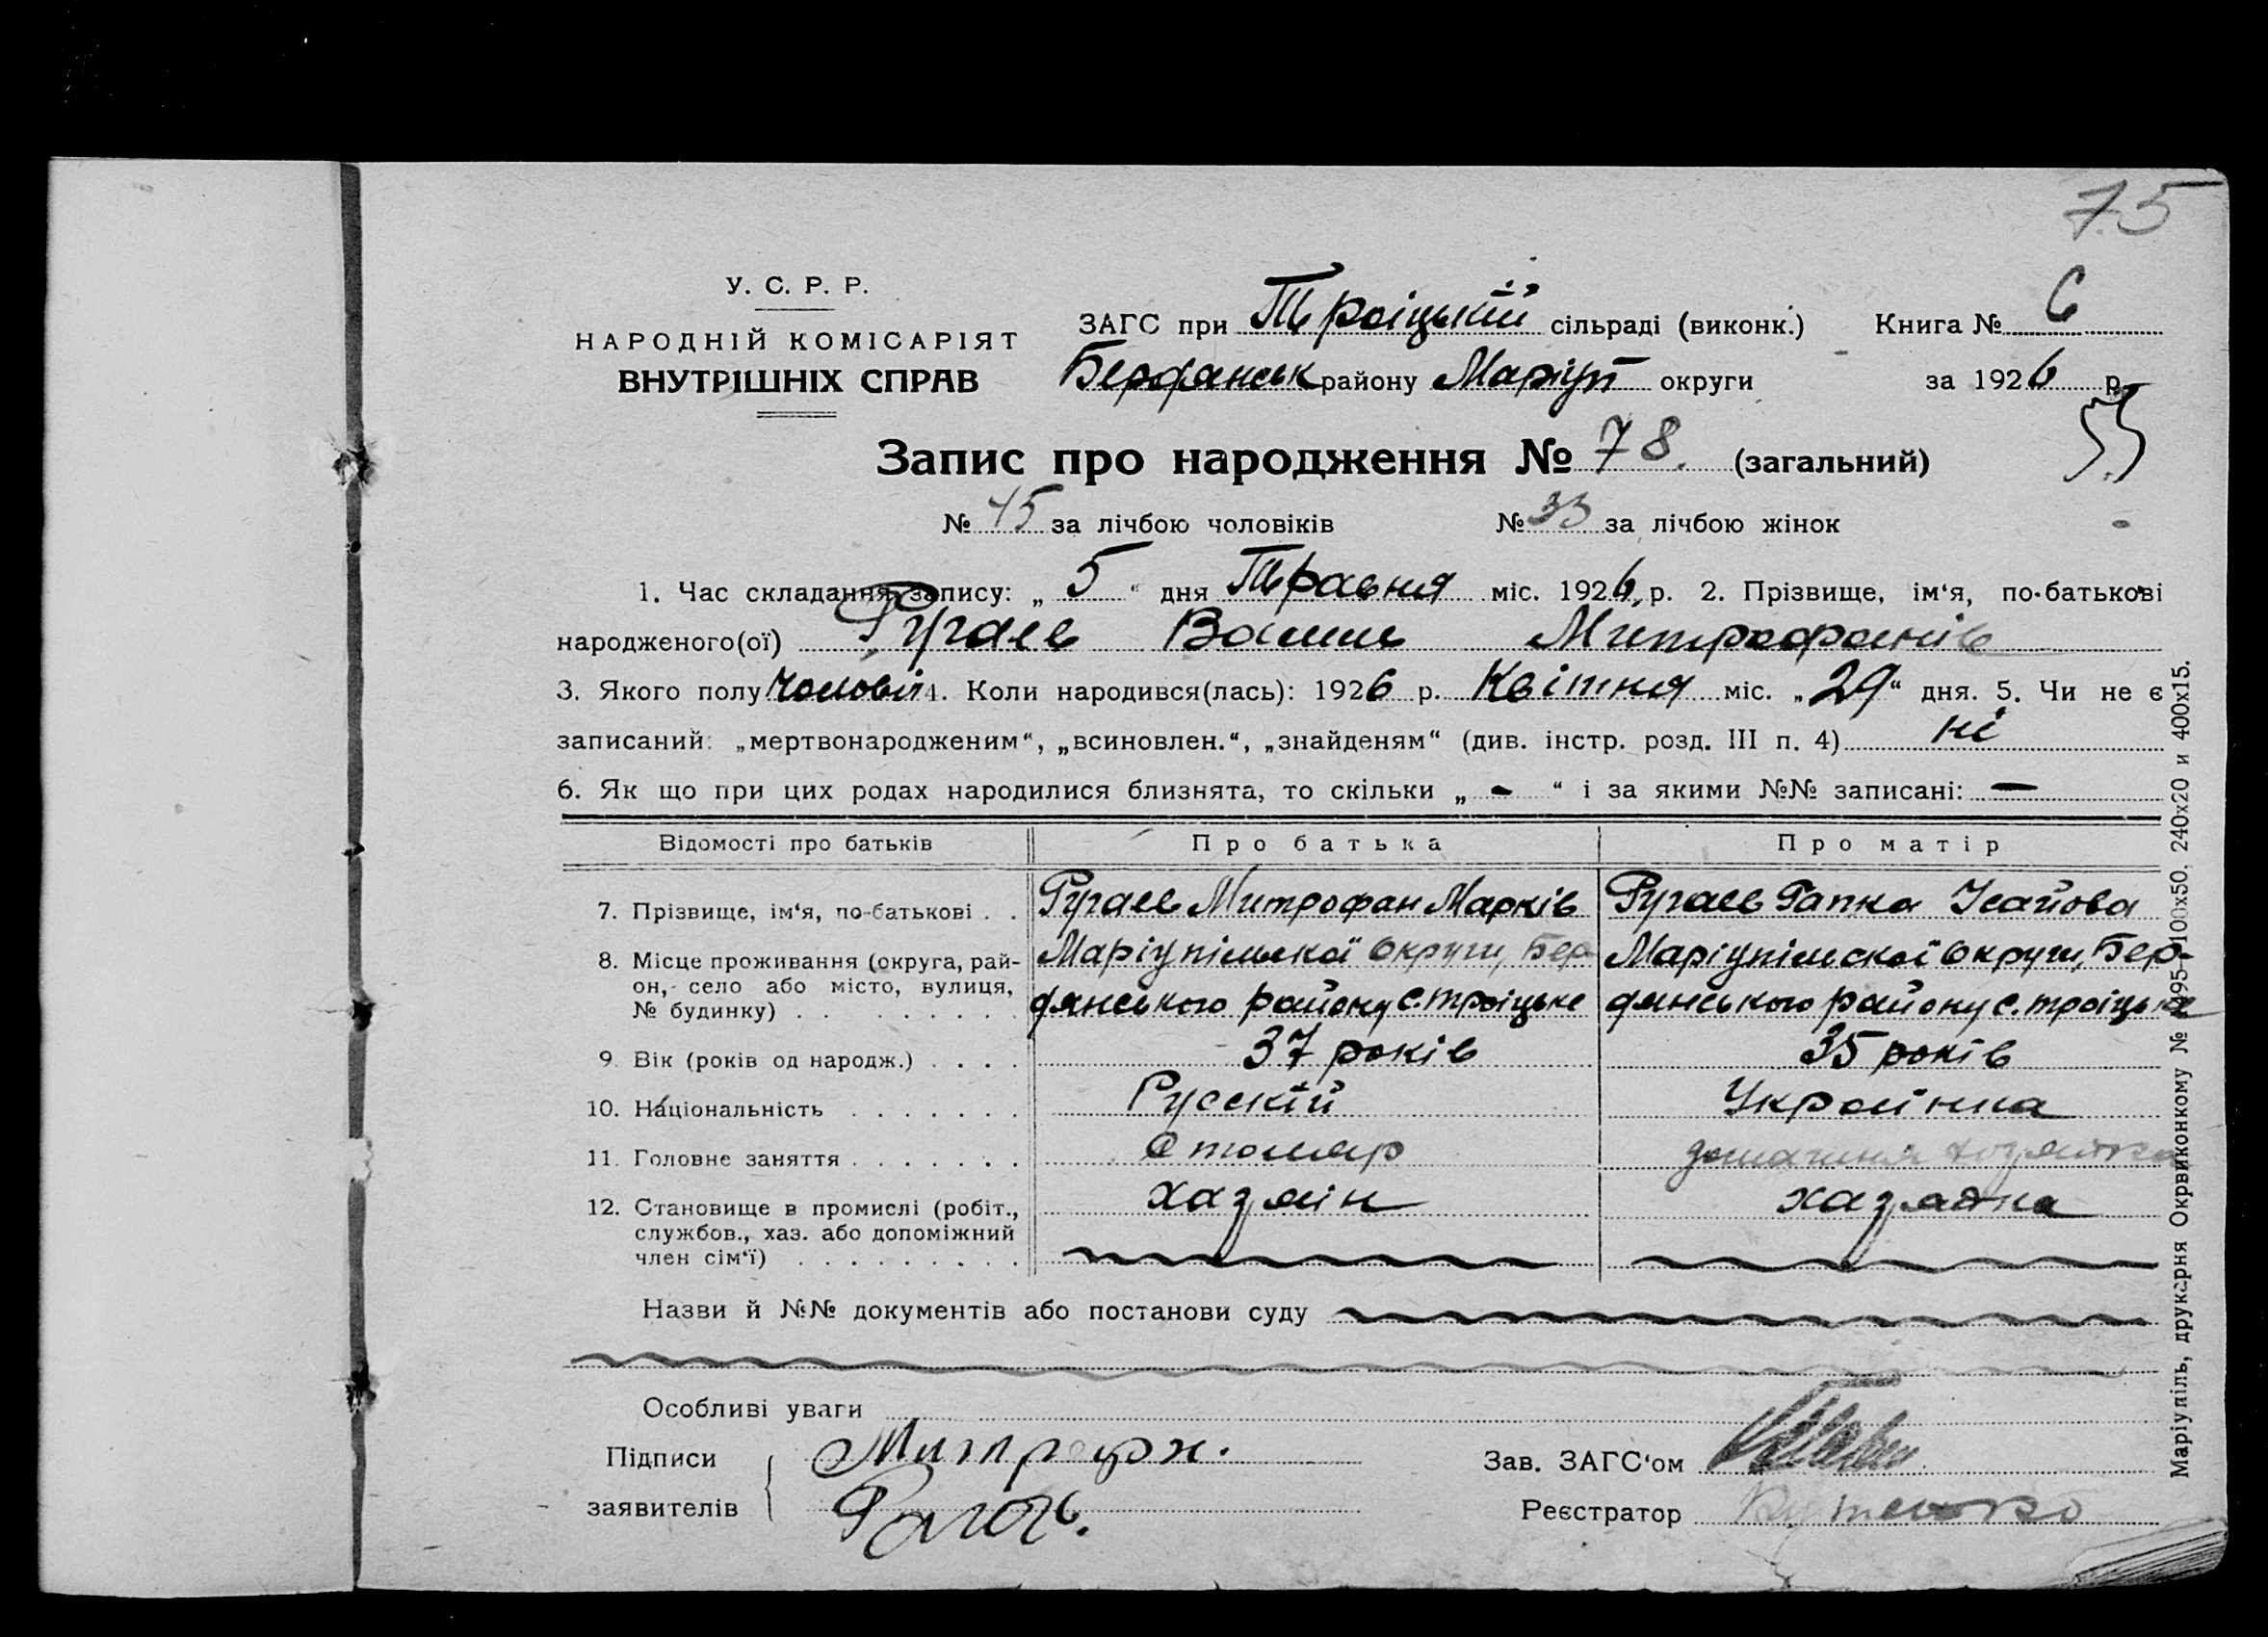 75
У. С. Р. Р.
НАРОДНІЙ КОМІСАРІЯТ
ВНУТРІШНІХ СПРАВ
ЗАГС при Троіцькій сільраді (виконк.) Книга № 6
Бердянськ району Маріуп округи за 1926 р.
Запис про народження № 78. (загальний)
№ 45 за лічбою чоловіків № 33 за лічбою жінок
1. Час складання запису: „ 5 “ дня Травня міс. 1926 р. 2. Прізвище, ім‘я, по-батькові
народженого(ої) Ругаев Митрофанів
3. Якого полу Чоловіч 4. Коли народився(лась): 1926 р. Квітня міс. „29“ дня. 5. Чи не є
записаний: „мертвонародженим“, „всиновлен.“, „знайденям“ (див. інстр. розд. III п. 4) ні
6. Як що при цих родах народилися близнята, то скільки „ - “ і за якими №№ записані: —
Відомості про батьків Про батька Про матір
7. Прізвище, ім‘я, по-батькові . . Ругаев Митрофан Марків Ругаев Гапка Ісайова
8. Місце проживання (округа, рай-
он, село або місто, вулиця,
№ будинку) . . . . . . . .
Маріупільскої округи, Бер-
дянського району с. троіцьке
Маріупілскої округи, Бер-
дянського району с. троіцьке
9. Вік (років од народж.) . . . . 37 років 35 років
10. Національність . . . . . . . Русскій Украінка
11. Головне заняття . . . . . . . Столяр домашня
12. Становище в промислі (робіт.,
службов., хаз. або допоміжний
член сім‘ї) . . . . . . . . .
хазяін хазяйка
Назви й №№ документів або постанови суду
Особливі уваги
Підписи
заявителів
Митроф
Зав. ЗАГС‘ом
Реєстратор
Маріупіль, друкарня Окрвиконкому № 495—100х50. 240х20 и 400х15.